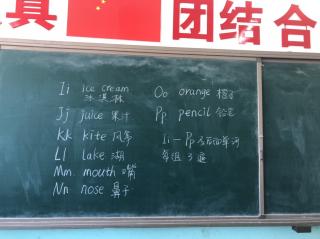 真 团结合
Ii ice cream
冰淇淋
Jj juice 果汁
Kk kite 风筝
Ll lake 湖
Mm mouth 嘴
Nn nose 鼻子
Oo orange 橙子
Pp pencil 铅笔
Ii — Pp 及后面单词
每组 3 遍